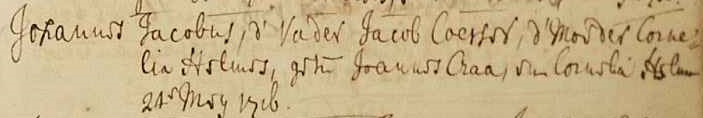 Johannes Jacobus, d' Vader Jacob Coerser, d' Moeder Corne=
lia Helmes, get: Joannes Craa, en Cornelia Helm
21e Mey 1716.